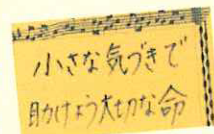 小さな気づきで
助けよう大切な命